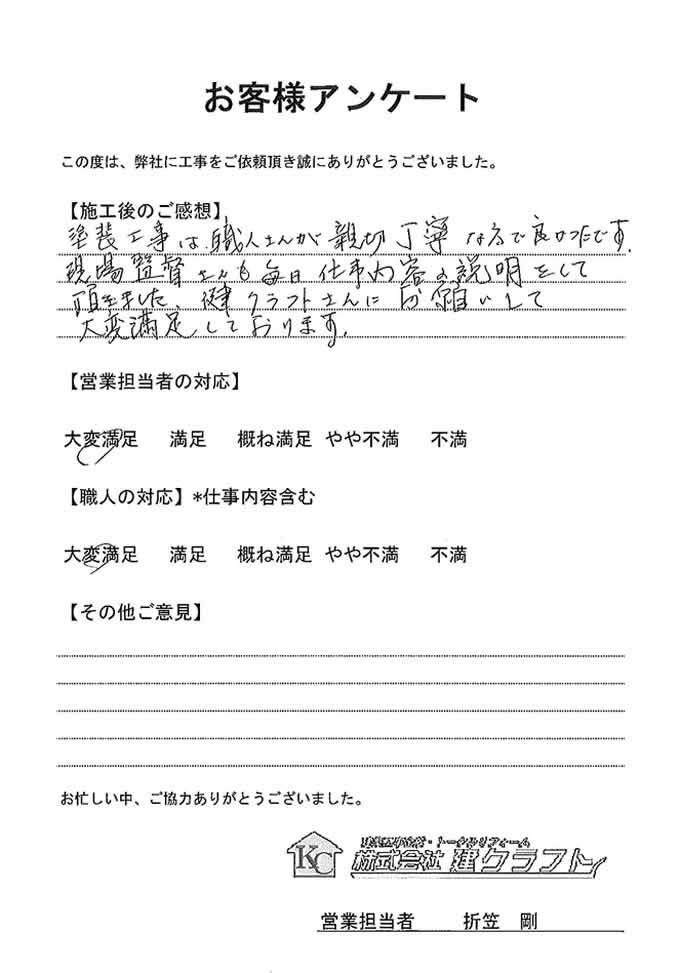 お客様アンケート
この度は、弊社に工事をご依頼頂き誠にありがとうございました。
【施工後のご感想】
塗装工事は、職人さんが親切丁寧な方で良かったです。
現場監督さんも毎日仕事内容の説明をして
頂きました、健クラフトさんにお願いして
大変満足しております。
【営業担当者の対応】
大変満足 満足 概ね満足 やや不満 不満
【職人の対応】*仕事内容含む
大変満足 満足 概ね満足 やや不満 不満
【その他ご意見】
お忙しい中、ご協力ありがとうございました。
KC
・トータルリフォーム
株式会社 建クラフト
営業担当者 折笠 剛